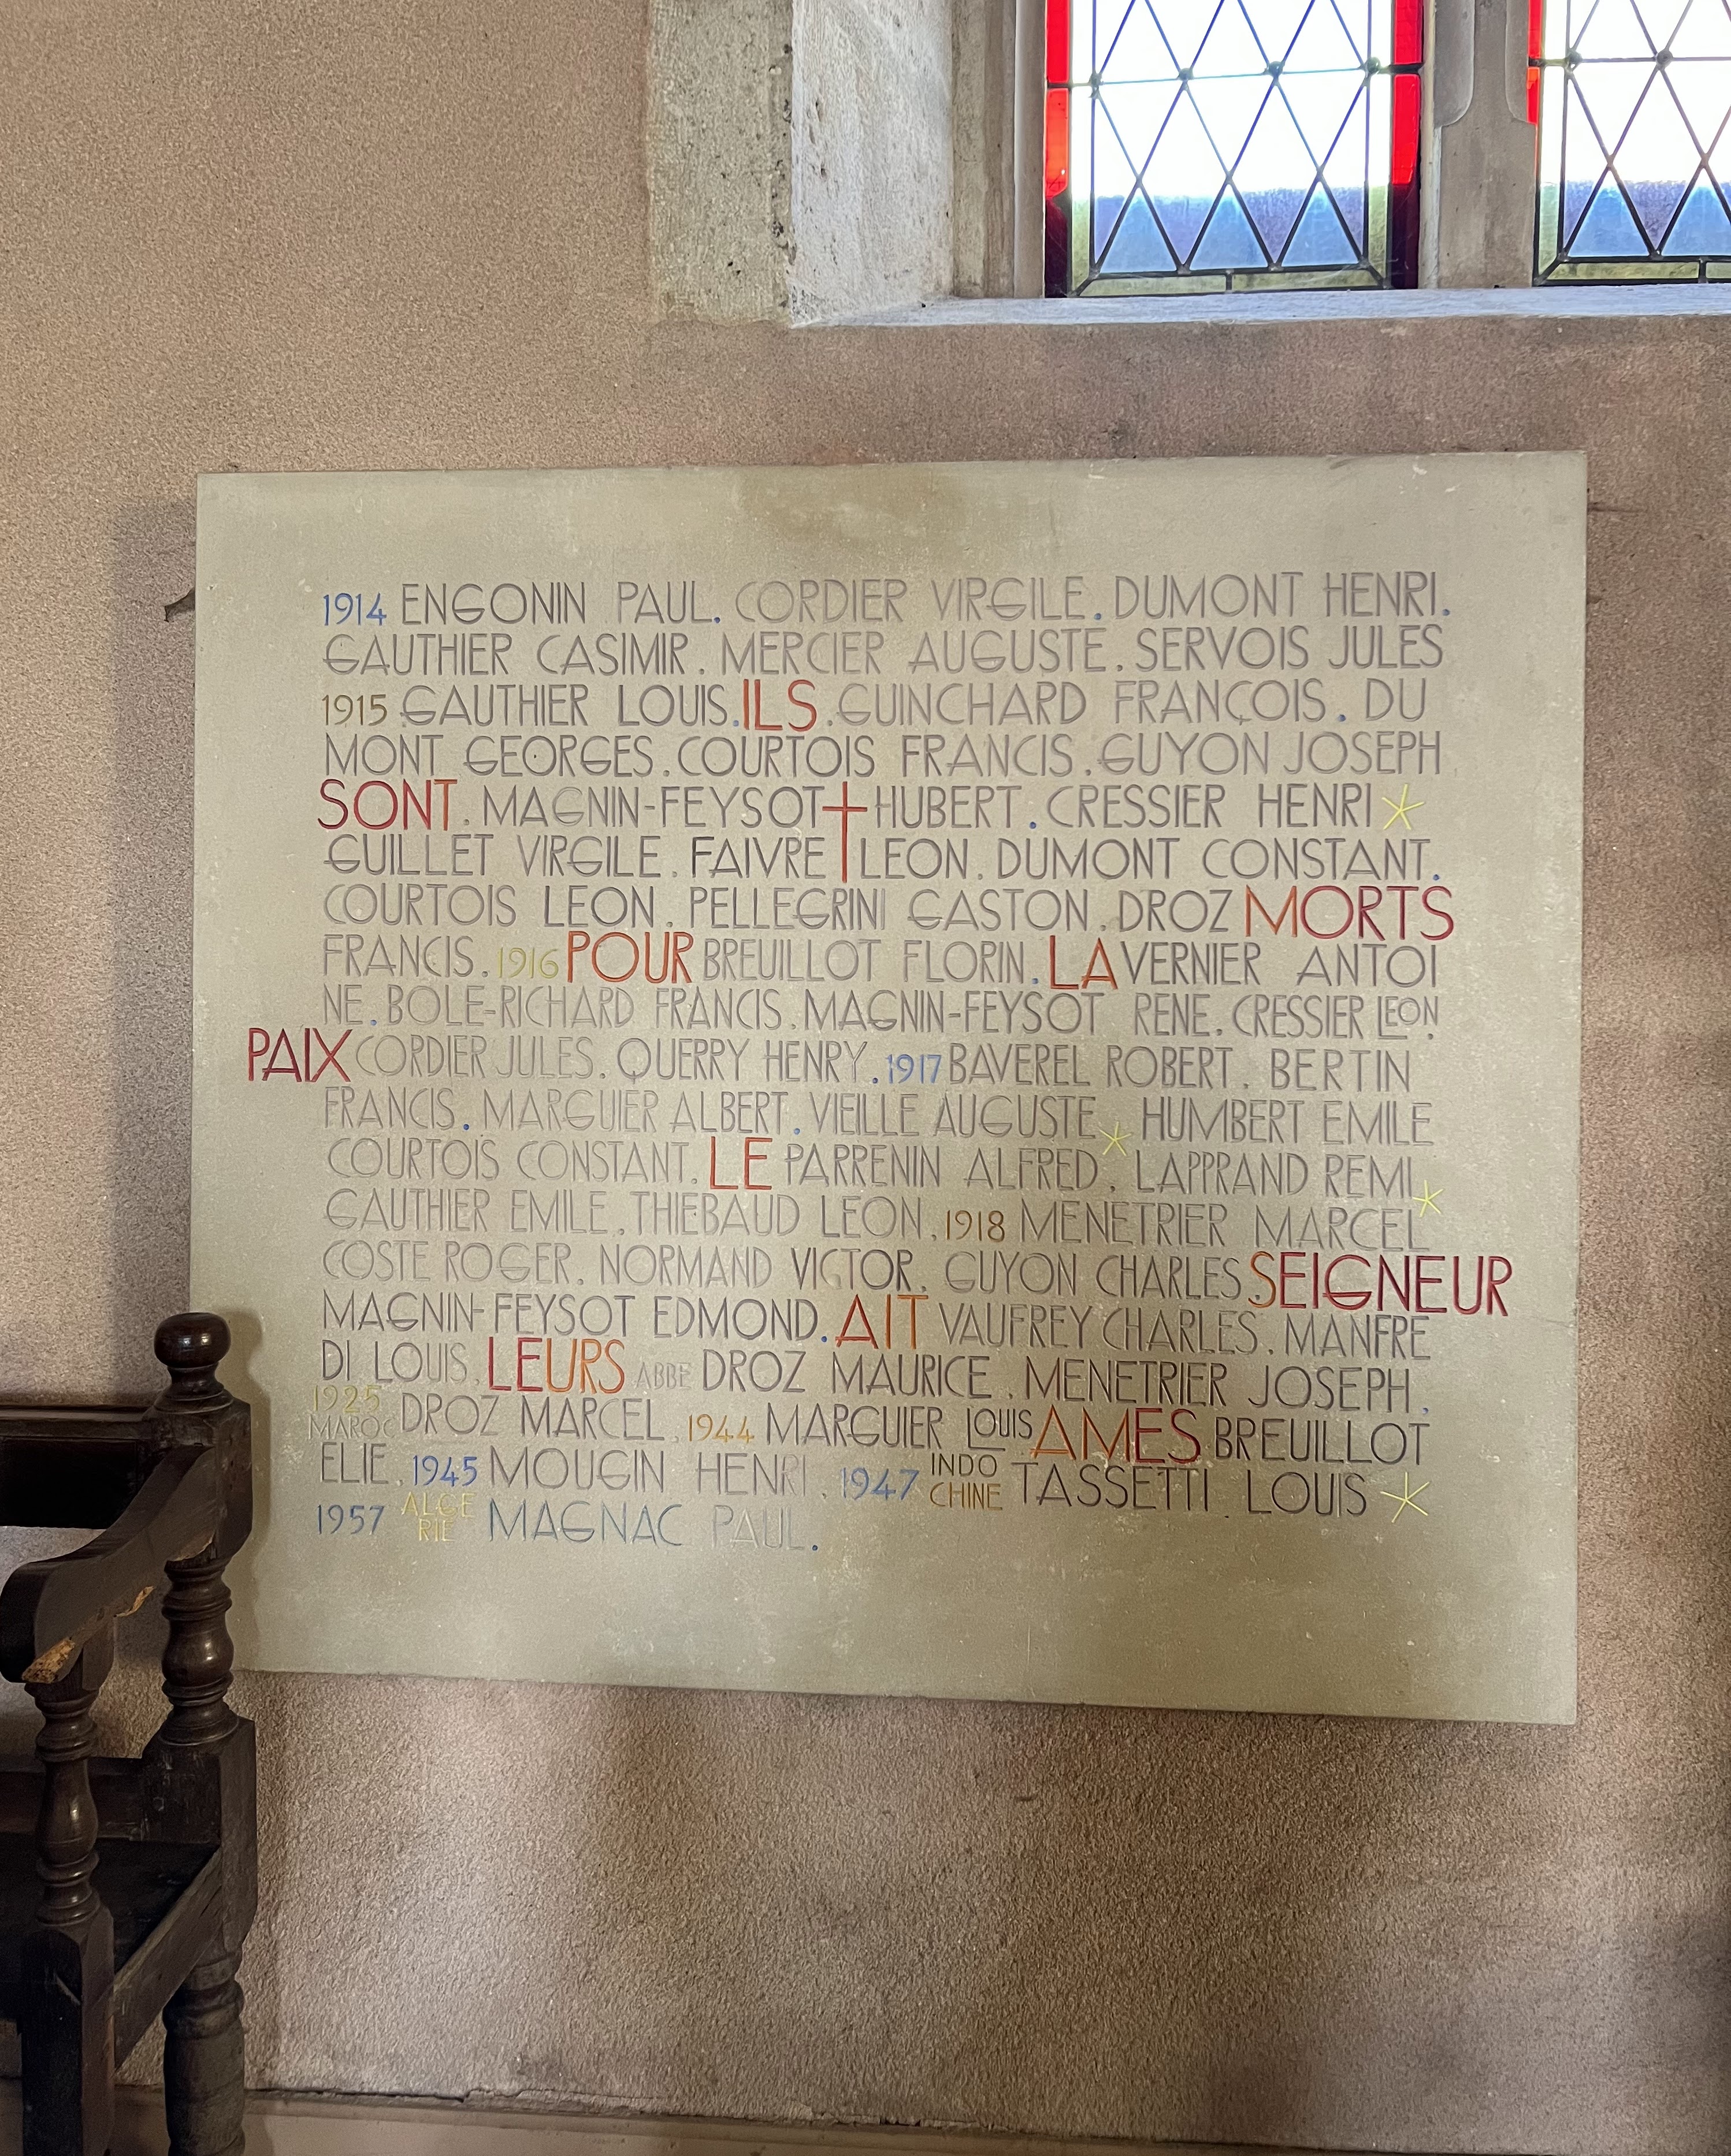 1914 ENGONIN PAUL. CORDIER VIRGILE. DUMONT HENRI.
GAUTHIER CASIMIR. MERCIER AUGUSTE. SERVOIS JULES
1915 GAUTHIER LOUIS. ILS. GUINCHARD FRANÇOIS. DU
MONT GEORGES. COURTOIS FRANCIS. GUYON JOSEPH
SONT. MAGNIN-FEYSOT † HUBERT. CRESSIER HENRI *
GUILLET VIRGILE. FAIVRE LEON. DUMONT CONSTANT.
COURTOIS LEON. PELLEGRINI GASTON. DROZ MORTS
FRANCIS. 1916 POUR BREUILLOT FLORIN. LA VERNIER ANTOI
NE. BOLE-RICHARD FRANCIS. MAGNIN-FEYSOT RENE. CRESSIER LEON.
PAIX CORDIER JULES. QUERRY HENRY. 1917 BAVEREL ROBERT. BERTIN
FRANCIS. MARGUIER ALBERT. VIEILLE AUGUSTE * HUMBERT EMILE
COURTOIS CONSTANT. LE PARRENIN ALFRED. LAPPRAND REMI *
GAUTHIER EMILE. THIEBAUD LEON. 1918 MENETRIER MARCEL
COSTE ROGER. NORMAND VICTOR. GUYON CHARLES SEIGNEUR
MAGNIN-FEYSOT EDMOND. AIT VAUFREY CHARLES. MANFRE
DI LOUIS. LEURS ABBE DROZ MAURICE. MENETRIER JOSEPH.
1925 MAROC DROZ MARCEL. 1944 MARGUIER LOUIS AMES BREUILLOT
ELIE. 1945 MOUGIN HENRI. 1947 INDO CHINE TASSETTI LOUIS *
1957 ALGE RIE MAGNAC PAUL.